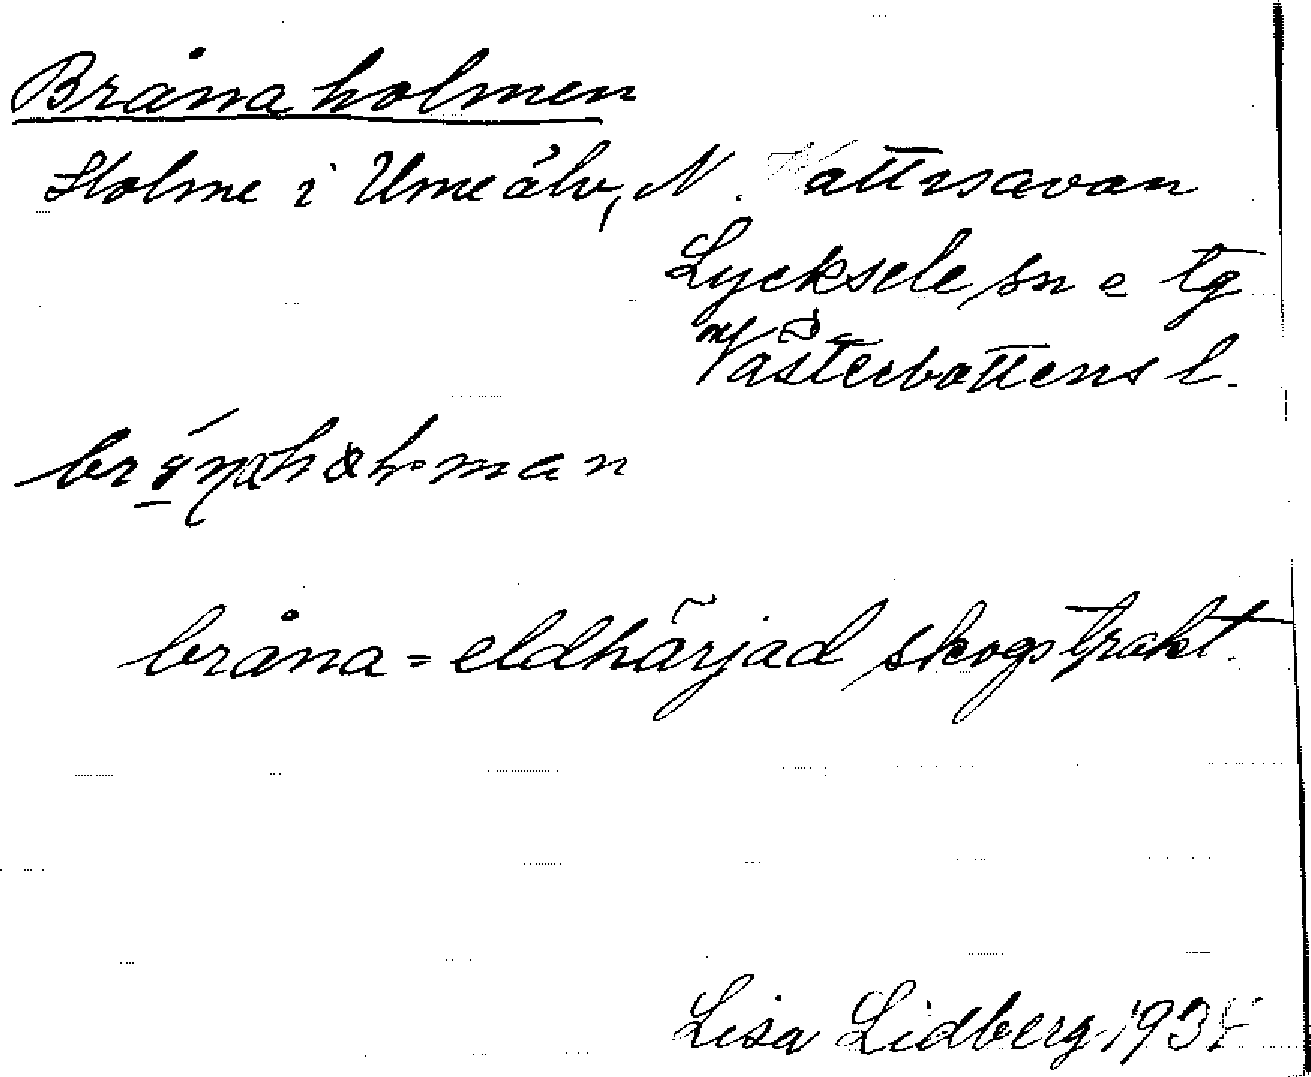 Brånaholmen
Holme i Umeälv, N. Vattnsavan
Lycksele sn o tg
Västerbottens l.
bråna = eldhärjad skogstrakt.
Lisa Lidberg 193